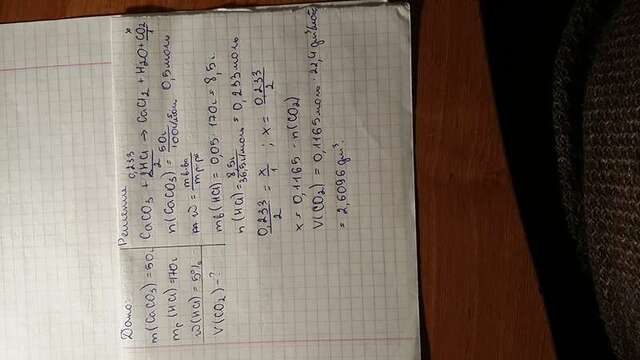 Дано:
m(CaCO3) = 50г
mр(HCl) = 170г
w(HCl) = 5%
V(CO2) - ?
Решение
0,233 x
CaCO3 + 2HCl → CaCl2 + H2O + CO2
2 1
n(CaCO3) = 50г / 100г/моль = 0,5моль
w = mв-ва / mр-ра
mв(HCl) = 0,05 · 170г = 8,5г
n(HCl) = 8,5г / 36,5г/моль = 0,233 моль
0,233 / 2 = x / 1 ; x = 0,233 / 2
x = 0,1165 - n(CO2)
V(CO2) = 0,1165моль · 22,4 дм³/моль
= 2,6096 дм³.